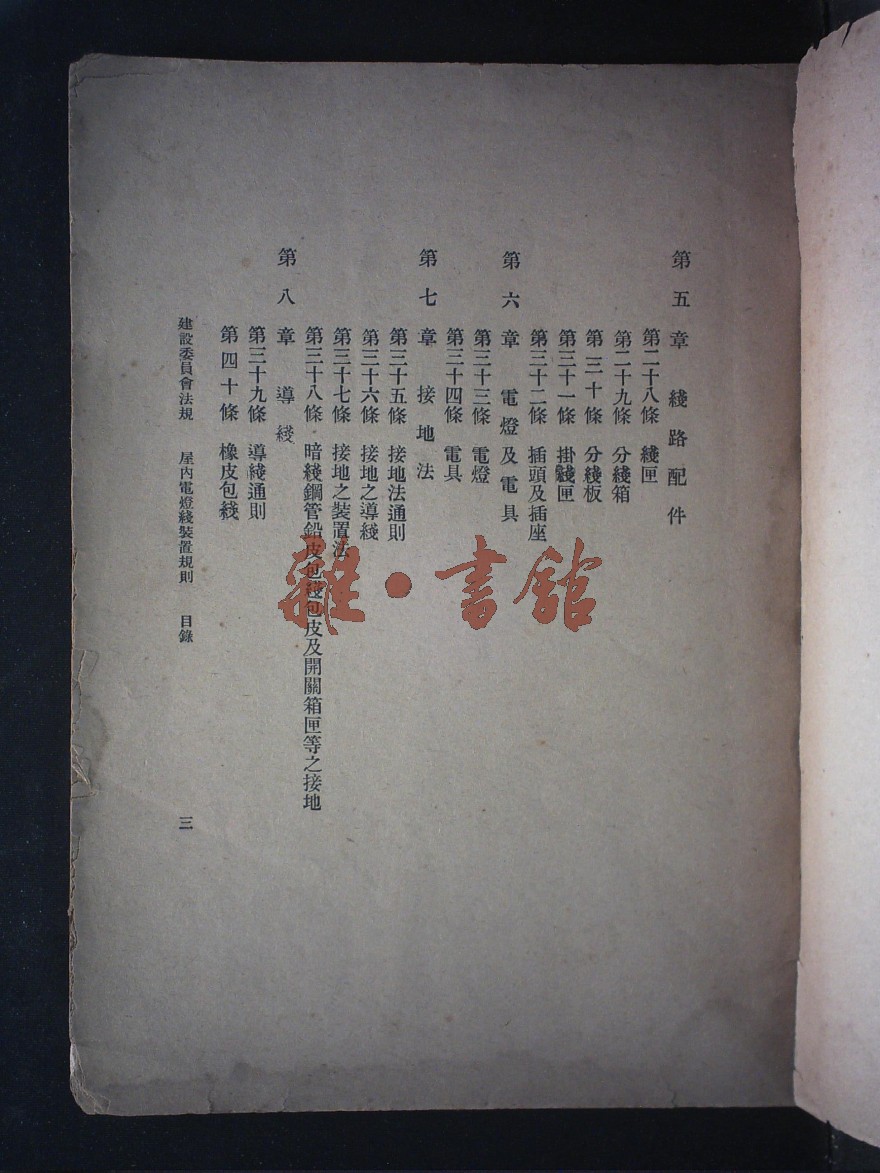 第五章 綫路配件
第二十八條 綫匣
第二十九條 分綫箱
第三十條 分綫板
第三十一條 掛綫匣
第三十二條 插頭及插座
第六章 電燈及電具
第三十三條 電燈
第三十四條 電具
第七章 接地法
第三十五條 接地法通則
第三十六條 接地之導綫
第三十七條 接地之裝置法
第三十八條 暗綫鋼管鉛皮包綫包皮及開關箱匣等之接地
第八章 導綫
第三十九條 導綫通則
第四十條 橡皮包綫
建設委員會法規 屋內電燈綫裝置規則 目錄 三
雜·書館